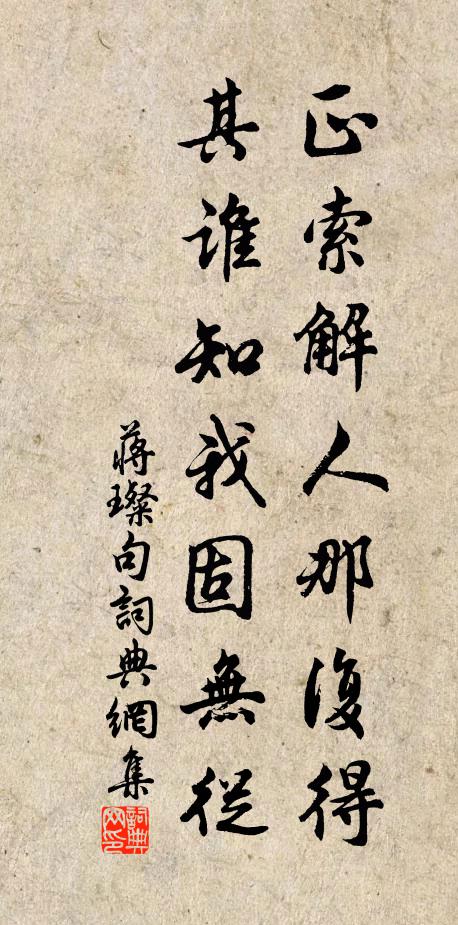 正索解人那復得
其誰知我固無從
蔣璨句詞典網集
詞典網印